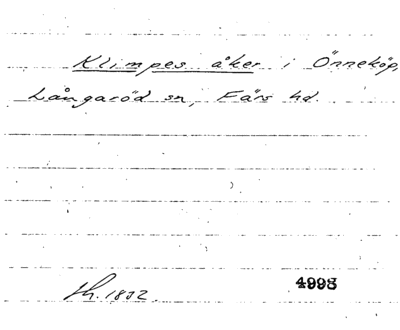 Klimpes åker i Önneköp,
Långaröd sn, Färs hd.
sh. 1832
4998